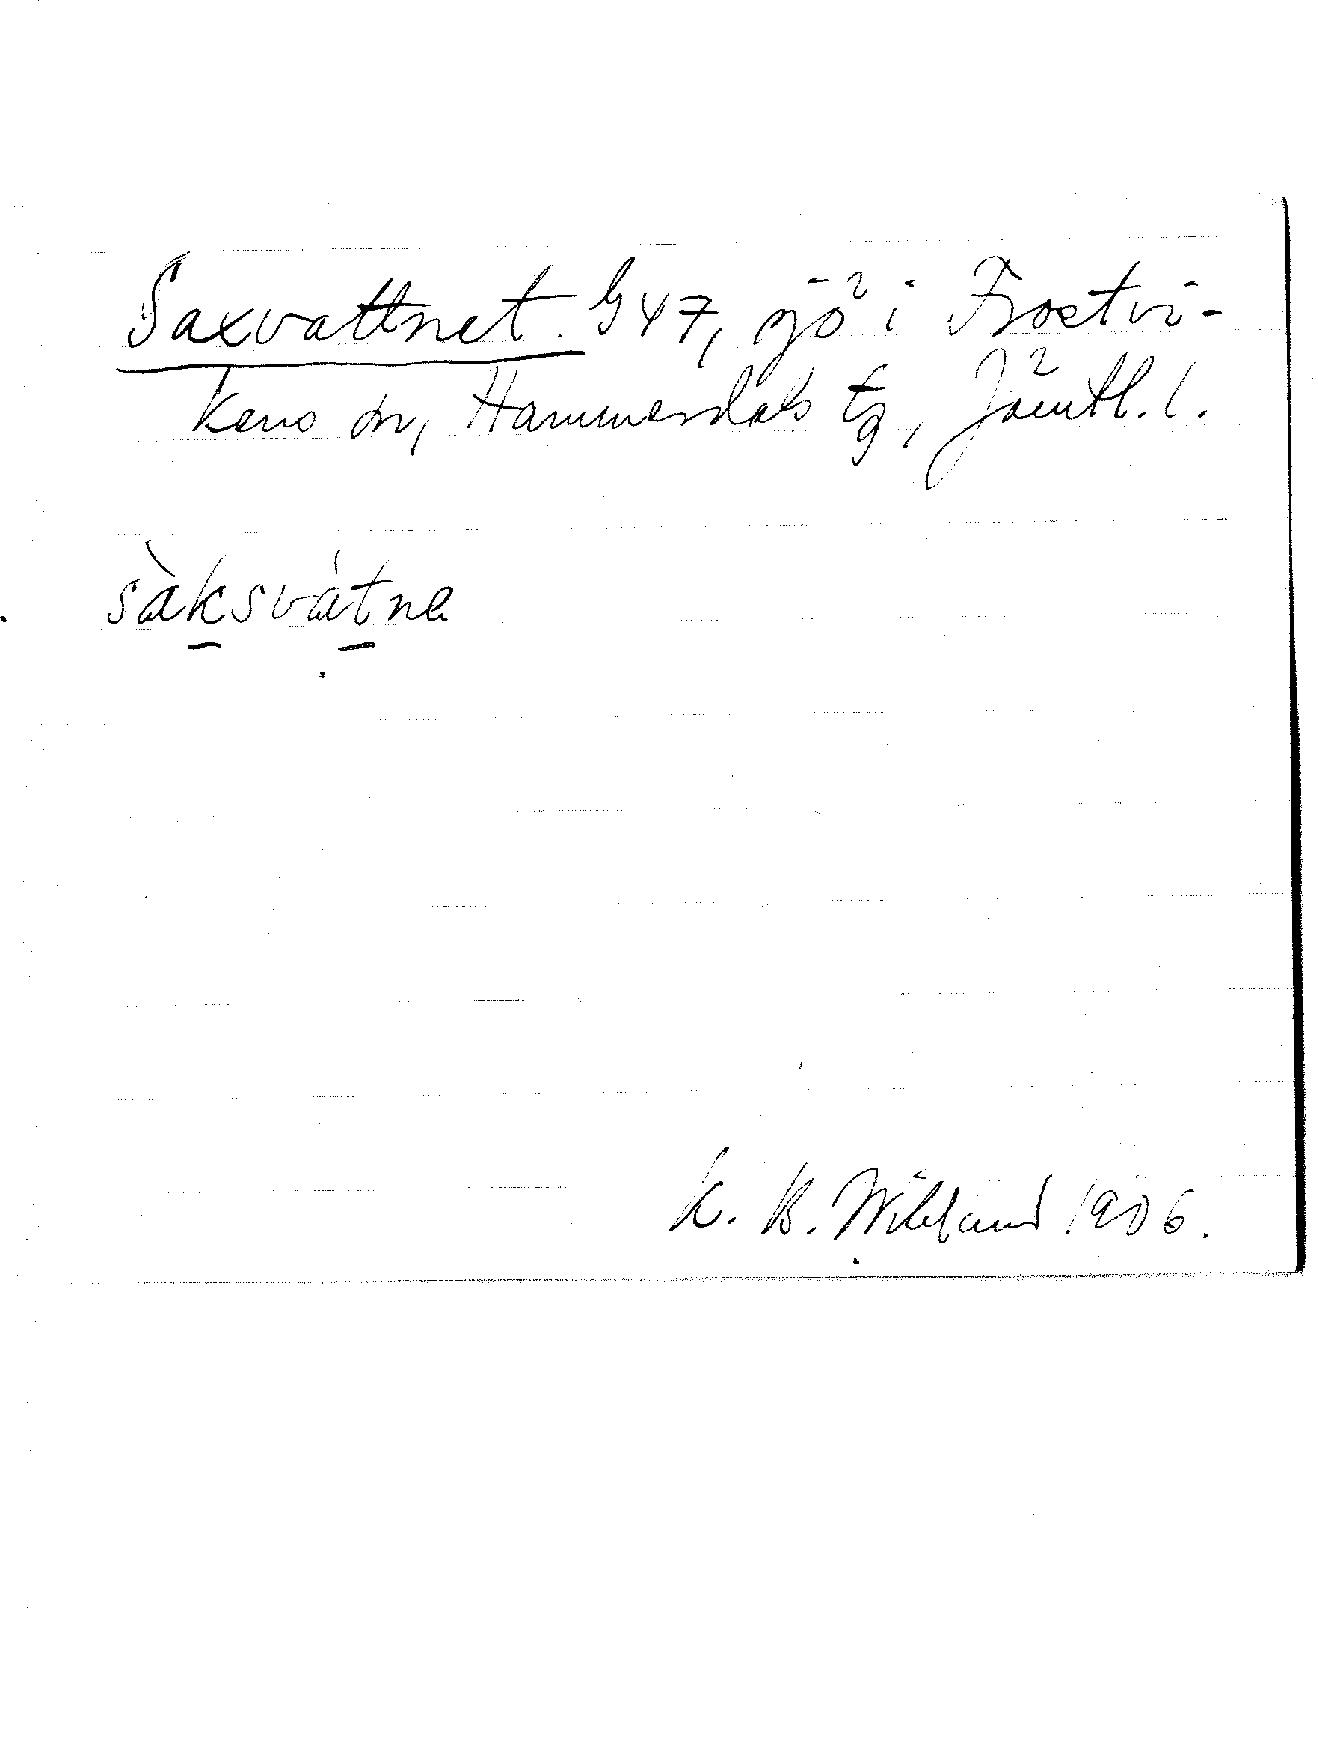 Saxvattnet. G47, sjö i Frostvi-
kens sn, Hammerdals tg, Jämtl. l.
sàksvátna
K. B. Wiklund 1906.